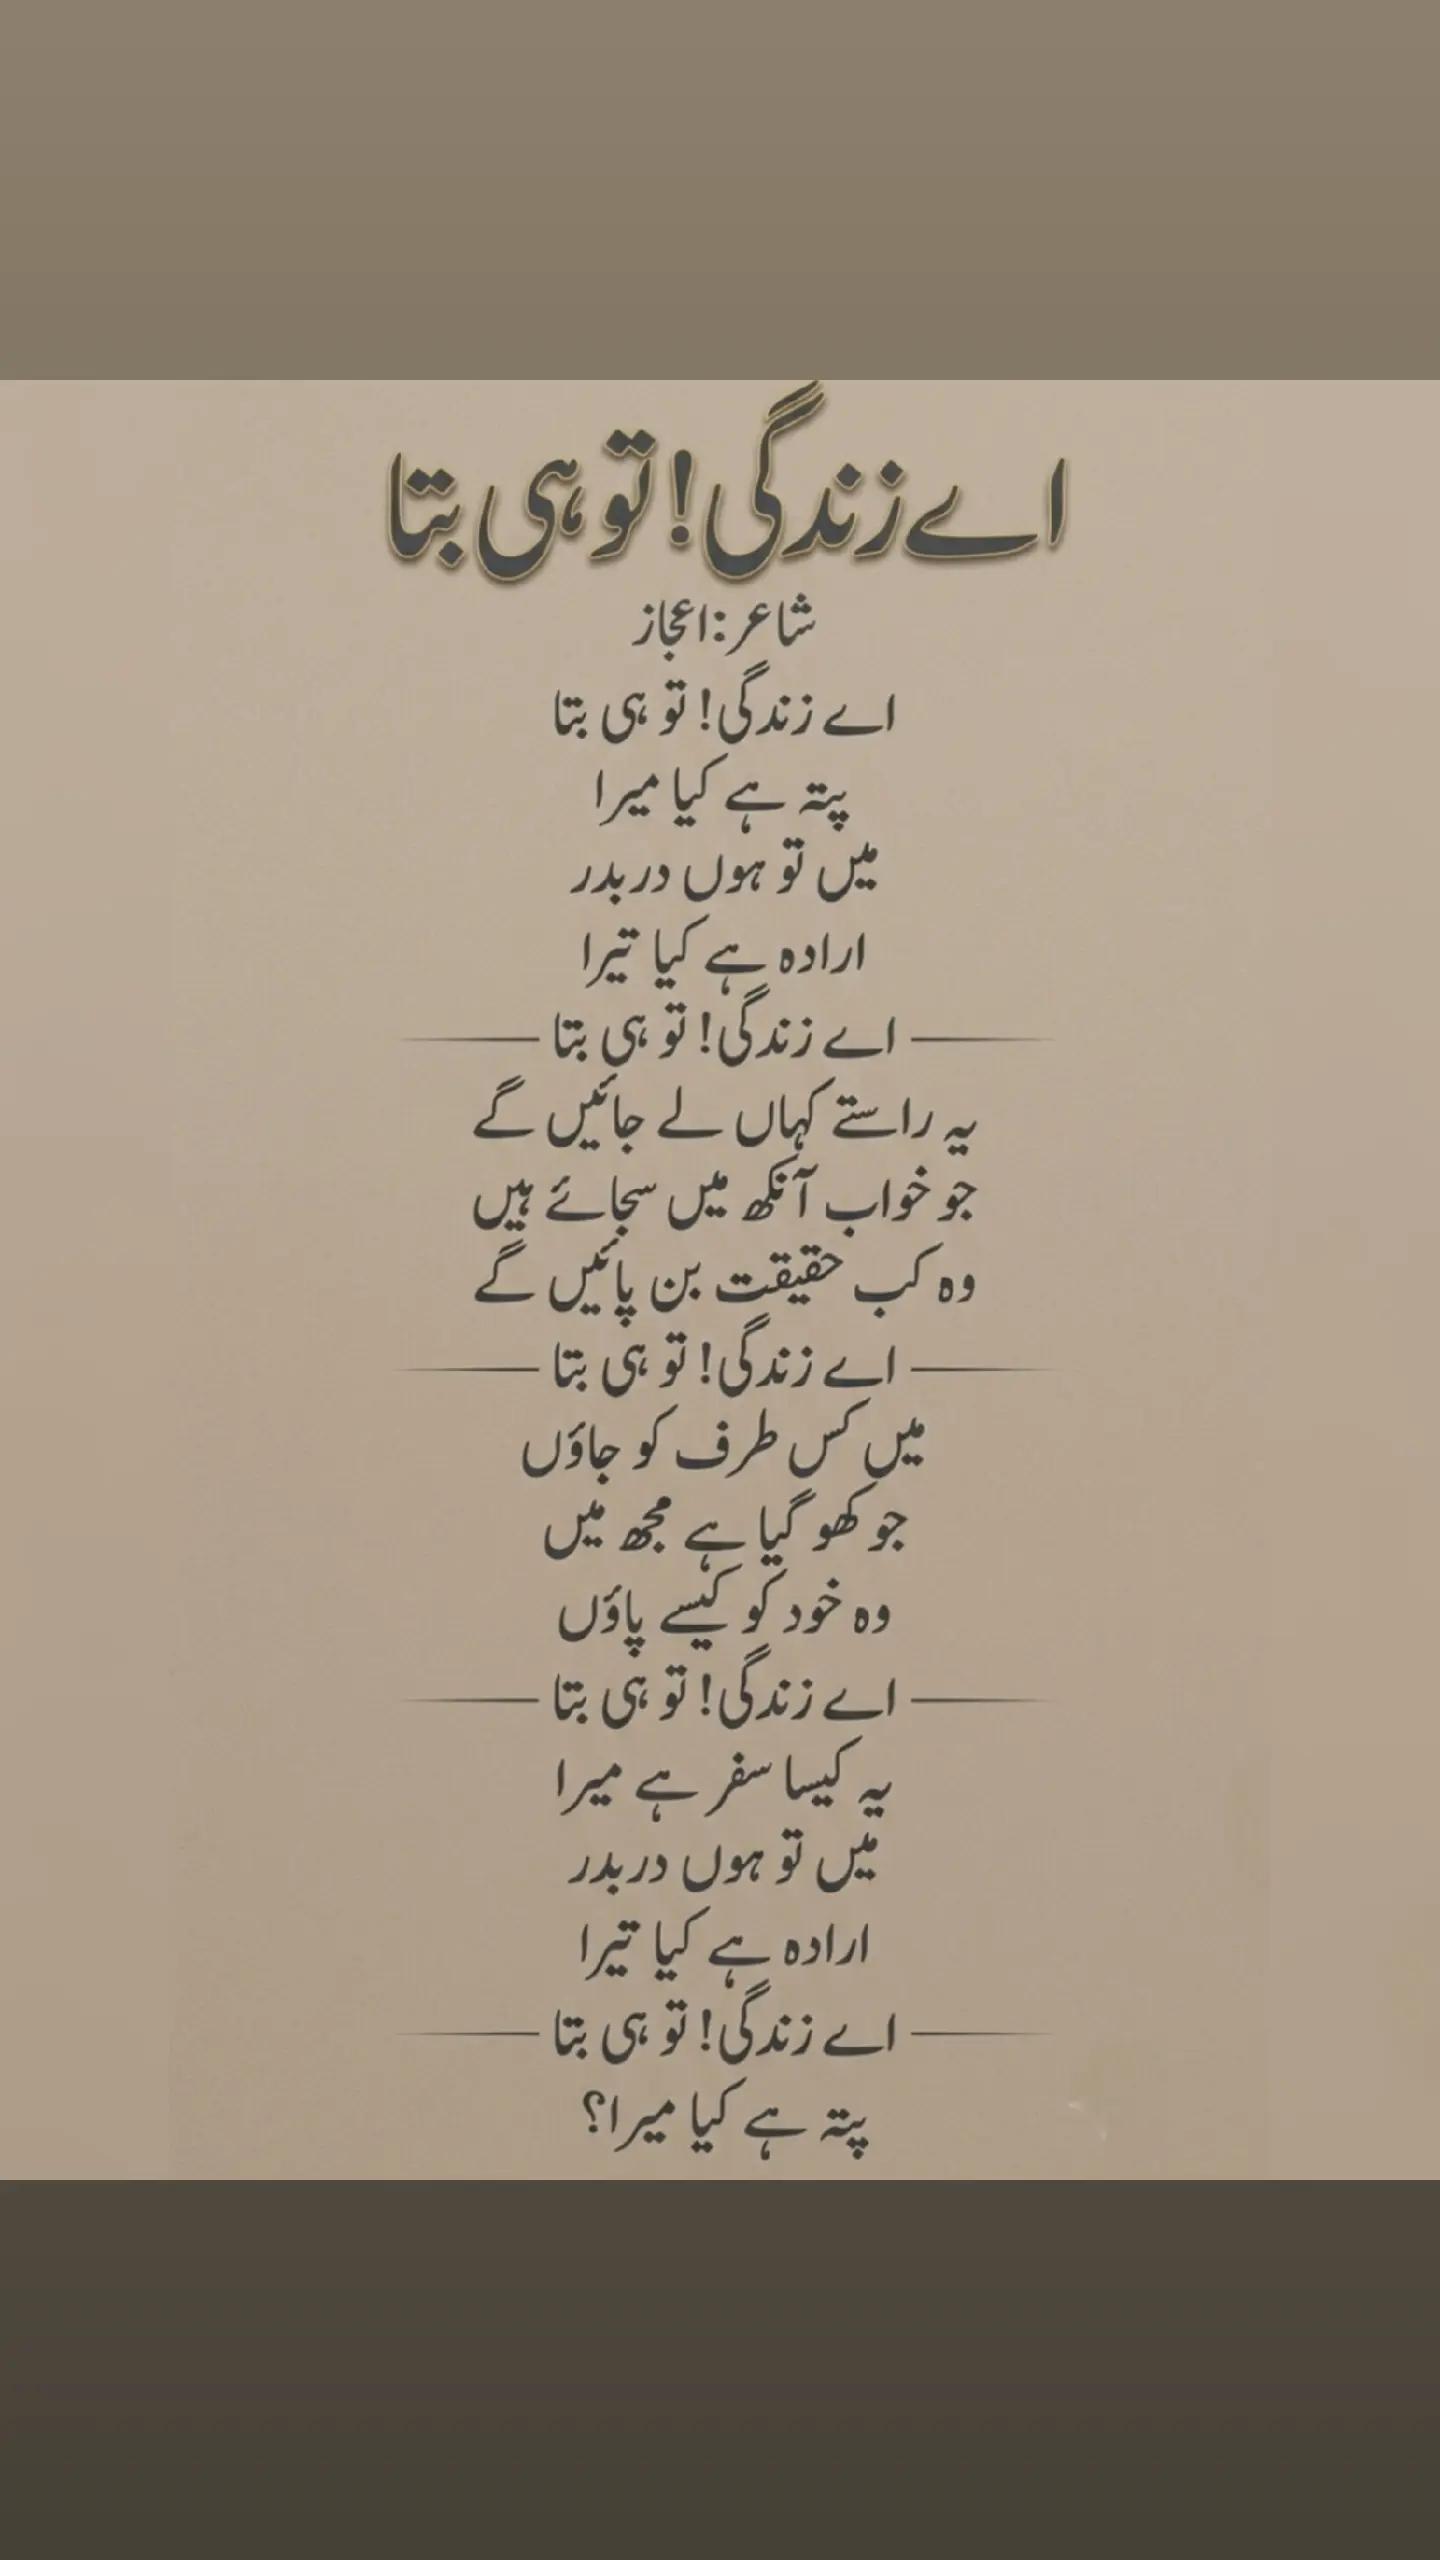 اے زندگی! تو ہی بتا
شاعر: اعجاز
اے زندگی! تو ہی بتا
پتہ ہے کیا میرا
میں تو ہوں دربدر
ارادہ ہے کیا تیرا
اے زندگی! تو ہی بتا
یہ راستے کہاں لے جائیں گے
جو خواب آنکھ میں سجائے ہیں
وہ کب حقیقت بن پائیں گے
اے زندگی! تو ہی بتا
میں کس طرف کو جاؤں
جو کھو گیا ہے مجھ میں
وہ خود کو کیسے پاؤں
اے زندگی! تو ہی بتا
یہ کیسا سفر ہے میرا
میں تو ہوں دربدر
ارادہ ہے کیا تیرا
اے زندگی! تو ہی بتا
پتہ ہے کیا میرا؟